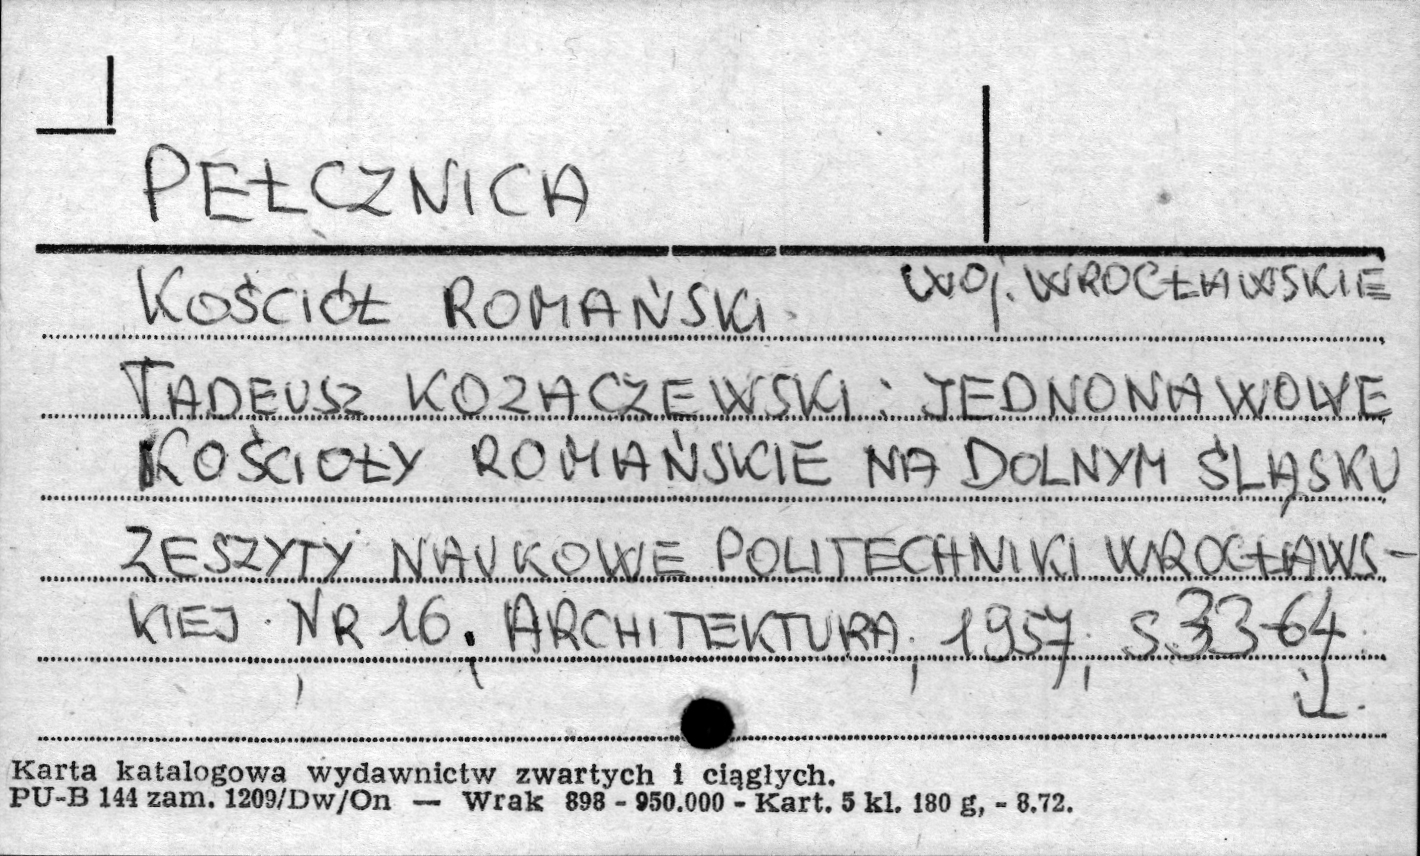 PEŁCZNICA
KOŚCIÓŁ ROMAŃSKI. WOJ. WROCŁAWSKIE
TADEUSZ KOZACZEWSKI: JEDNONAWOWE
KOŚCIOŁY ROMAŃSKIE NA DOLNYM ŚLĄSKU
ZESZYTY NAUKOWE POLITECHNIKI WROCŁAWS-
KIEJ. NR 16. ARCHITEKTURA, 1957, S. 33-64.
il.
Karta katalogowa wydawnictw zwartych i ciągłych.
PU-B 144 zam. 1209/Dw/On — Wrak 898 - 950.000 - Kart. 5 kl. 180 g, - 8.72.